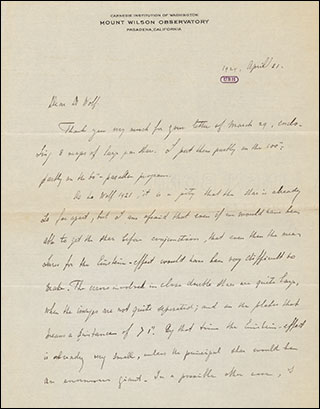 CARNEGIE INSTITUTION OF WASHINGTON
MOUNT WILSON OBSERVATORY
PASADENA, CALIFORNIA
April
Dear Dr Wolf.
Thank you very much for your letter of March 29, enclo-
sing 8 maps of large pm stars. I put them partly on the 100"
partly on the 60"-parallax program.
As to Wolf 1421 it is a pity that the star is already
so far apart, but I am afraid that even if we would have been
able to get the star before conjunction, that even then the mea-
sures for the Einstein-effect would have been very difficult to
make. The errors involved in close double stars are quite large,
when the images are not quite separated; and on the plates that
means a distance of > 1". By that time the Einstein-effect
is already very small, unless the principal star would have
an enormous giant. In a possible other case, I